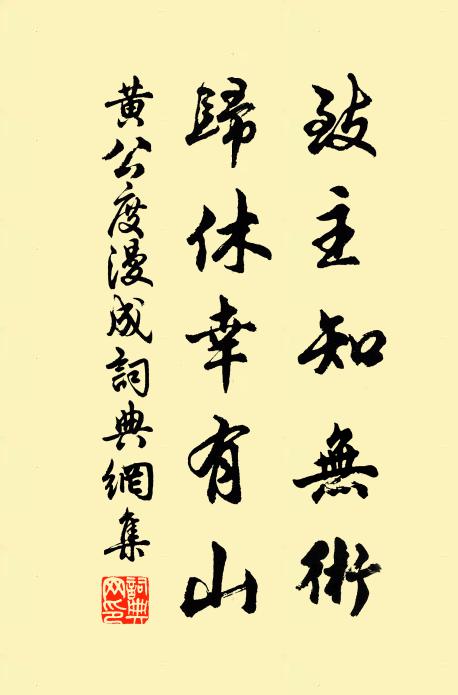 致主知無術
歸休幸有山
黃公度漫成詞典網集
詞典網印